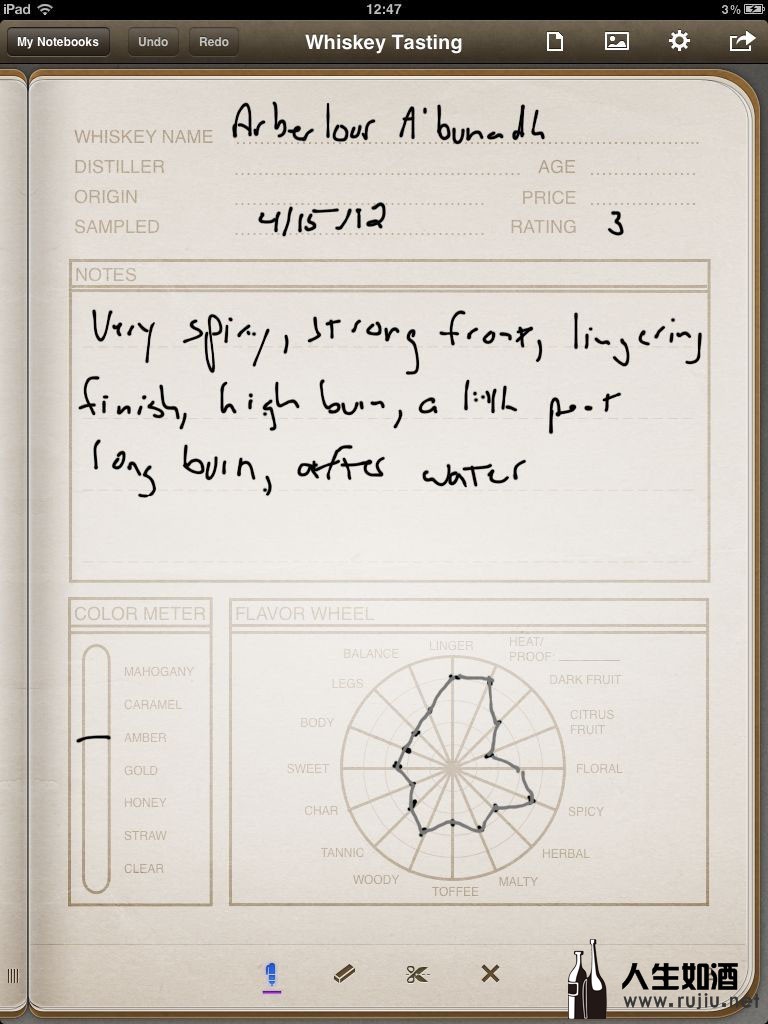 iPad 12:47 3%
My Notebooks Undo Redo Whiskey Tasting
WHISKEY NAME Arberlour A'bunadh
DISTILLER AGE
ORIGIN PRICE
SAMPLED 4/15/12 RATING 3
NOTES
Very spicy, strong front, lingering
finish, high burn, a little peat
long burn, after water
COLOR METER
MAHOGANY
CARAMEL
AMBER
GOLD
HONEY
STRAW
CLEAR
FLAVOR WHEEL
LINGER
HEAT/
PROOF:
DARK FRUIT
CITRUS
FRUIT
FLORAL
SPICY
HERBAL
MALTY
TOFFEE
WOODY
TANNIC
CHAR
SWEET
BODY
LEGS
BALANCE
人生如酒
www.rujiu.net